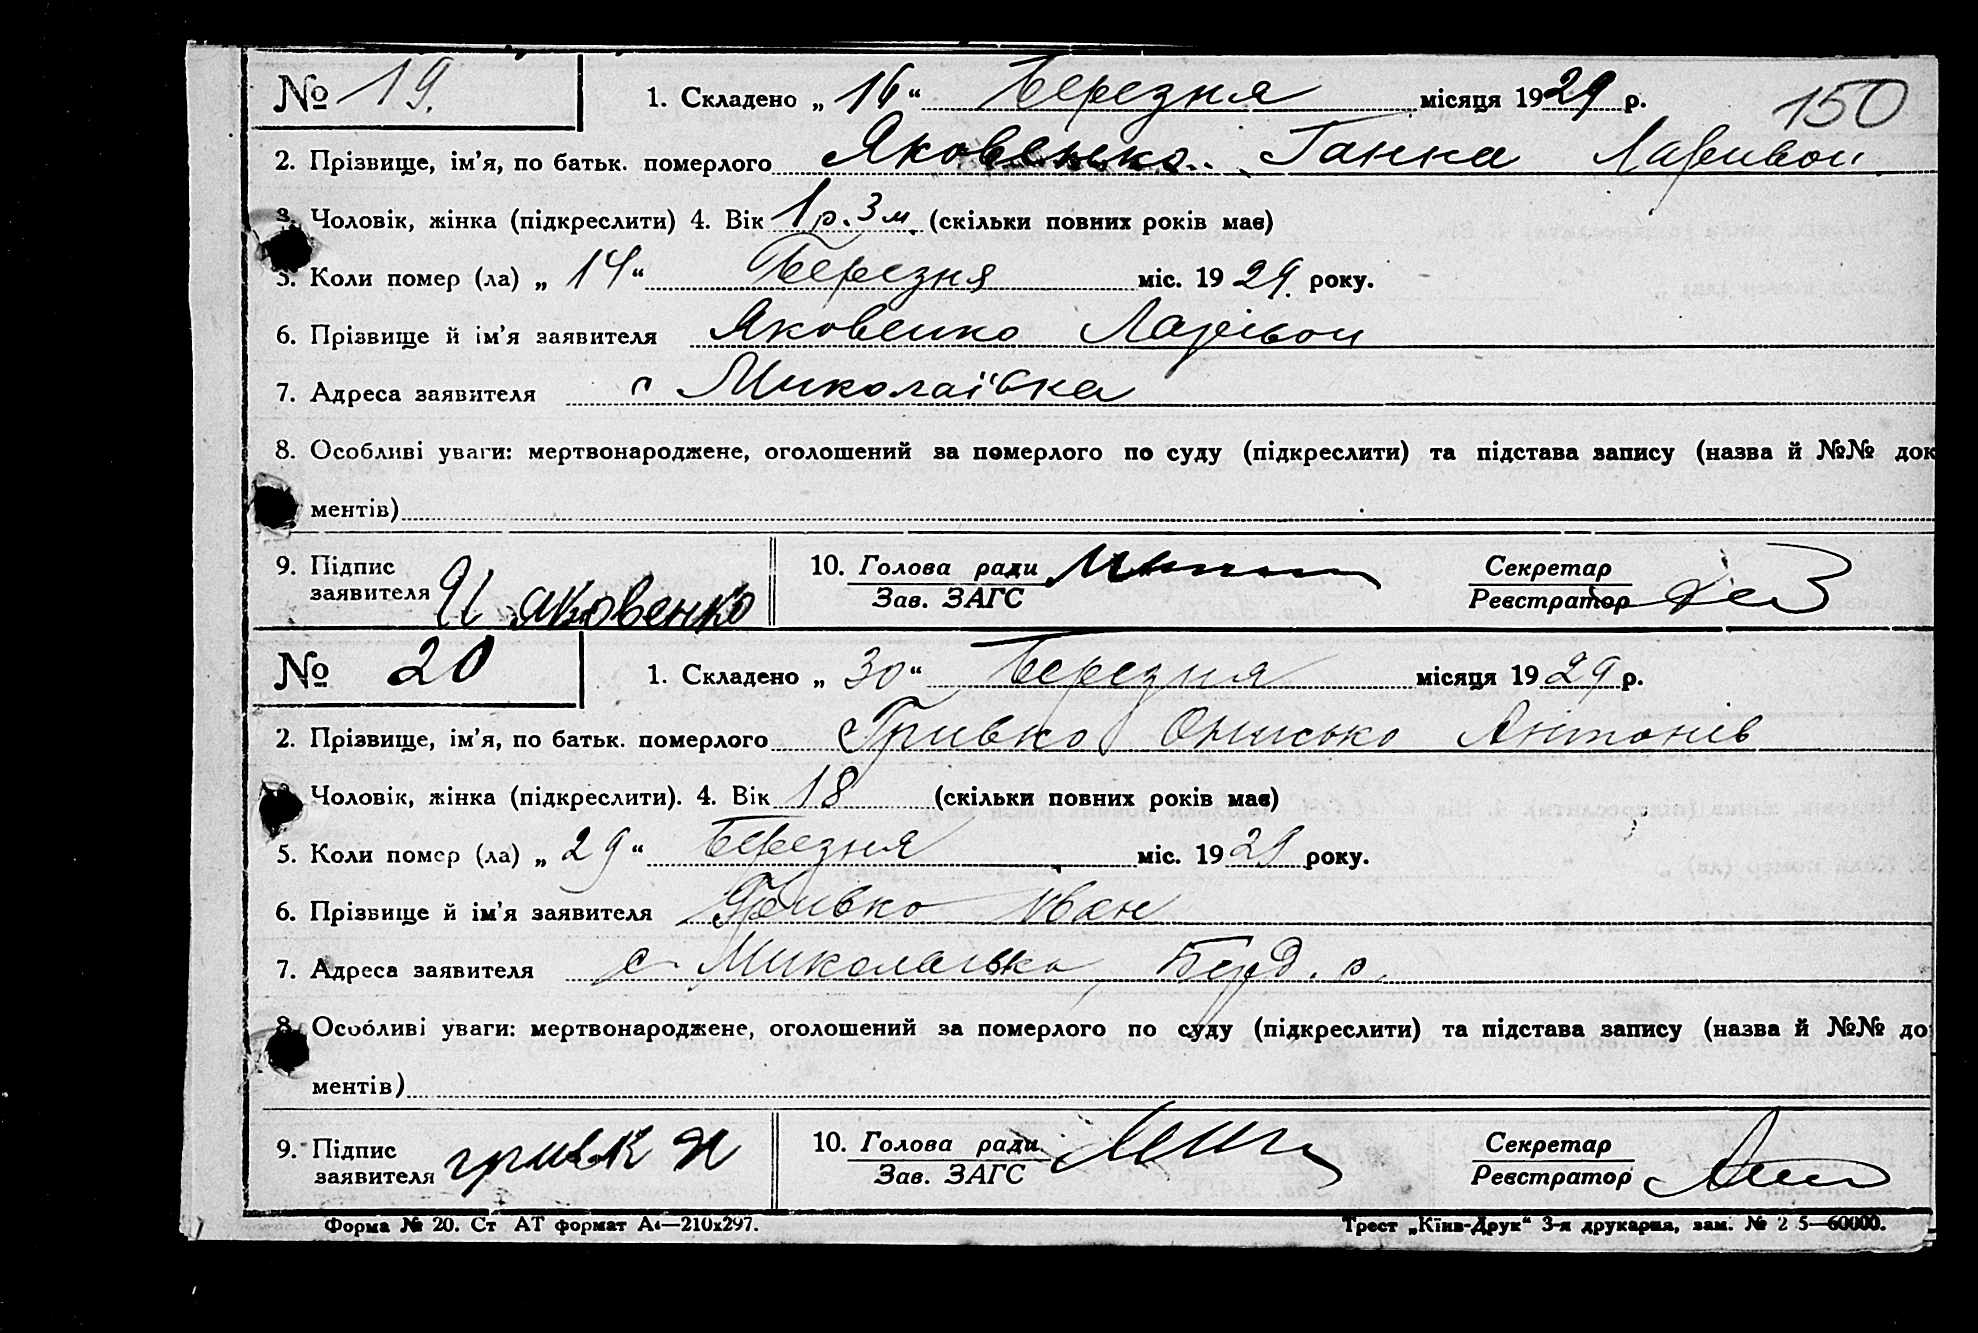 № 19. 1. Складено „ 16 “ Березня місяця 1929 р. 150
2. Прізвище, ім’я, по батьк. померлого Яковенко. Ганна Ларивон
3. Чоловік, жінка (підкреслити) 4. Вік 1 р. 3 м. (скільки повних років має)
5. Коли помер (ла) „ 14 “ Березня міс. 19 29. року.
6. Прізвище й ім’я заявителя Яковенко Ларівон
7. Адреса заявителя с Миколаївка
8. Особливі уваги: мертвонароджене, оголошений за померлого по суду (підкреслити) та підстава запису (назва й №№ док
ментів)
9. Підпис заявителя Яковенко 10. Голова ради Секретар
Зав. ЗАГС Реєстратор
№ 20 1. Складено „ 30 “ Березня місяця 19 29 р.
2. Прізвище, ім’я, по батьк. померлого Гривко Онисько Антонів
Чоловік, жінка (підкреслити). 4. Вік 18 (скільки повних років має)
5. Коли помер (ла) „ 29 “ Березня міс. 19 29 року.
6. Прізвище й ім’я заявителя Гривко Иван
7. Адреса заявителя с. Миколаівка Берд. р.
8. Особливі уваги: мертвонароджене, оголошений за померлого по суду (підкреслити) та підстава запису (назва й №№ до
ментів)
9. Підпис заявителя гривк 10. Голова ради Секретар
Зав. ЗАГС Реєстратор
Форма № 20. Ст АТ формат А4—210x297. Трест „Київ-Друк“ 3-я друкарня, зам. № 2 5—60000.